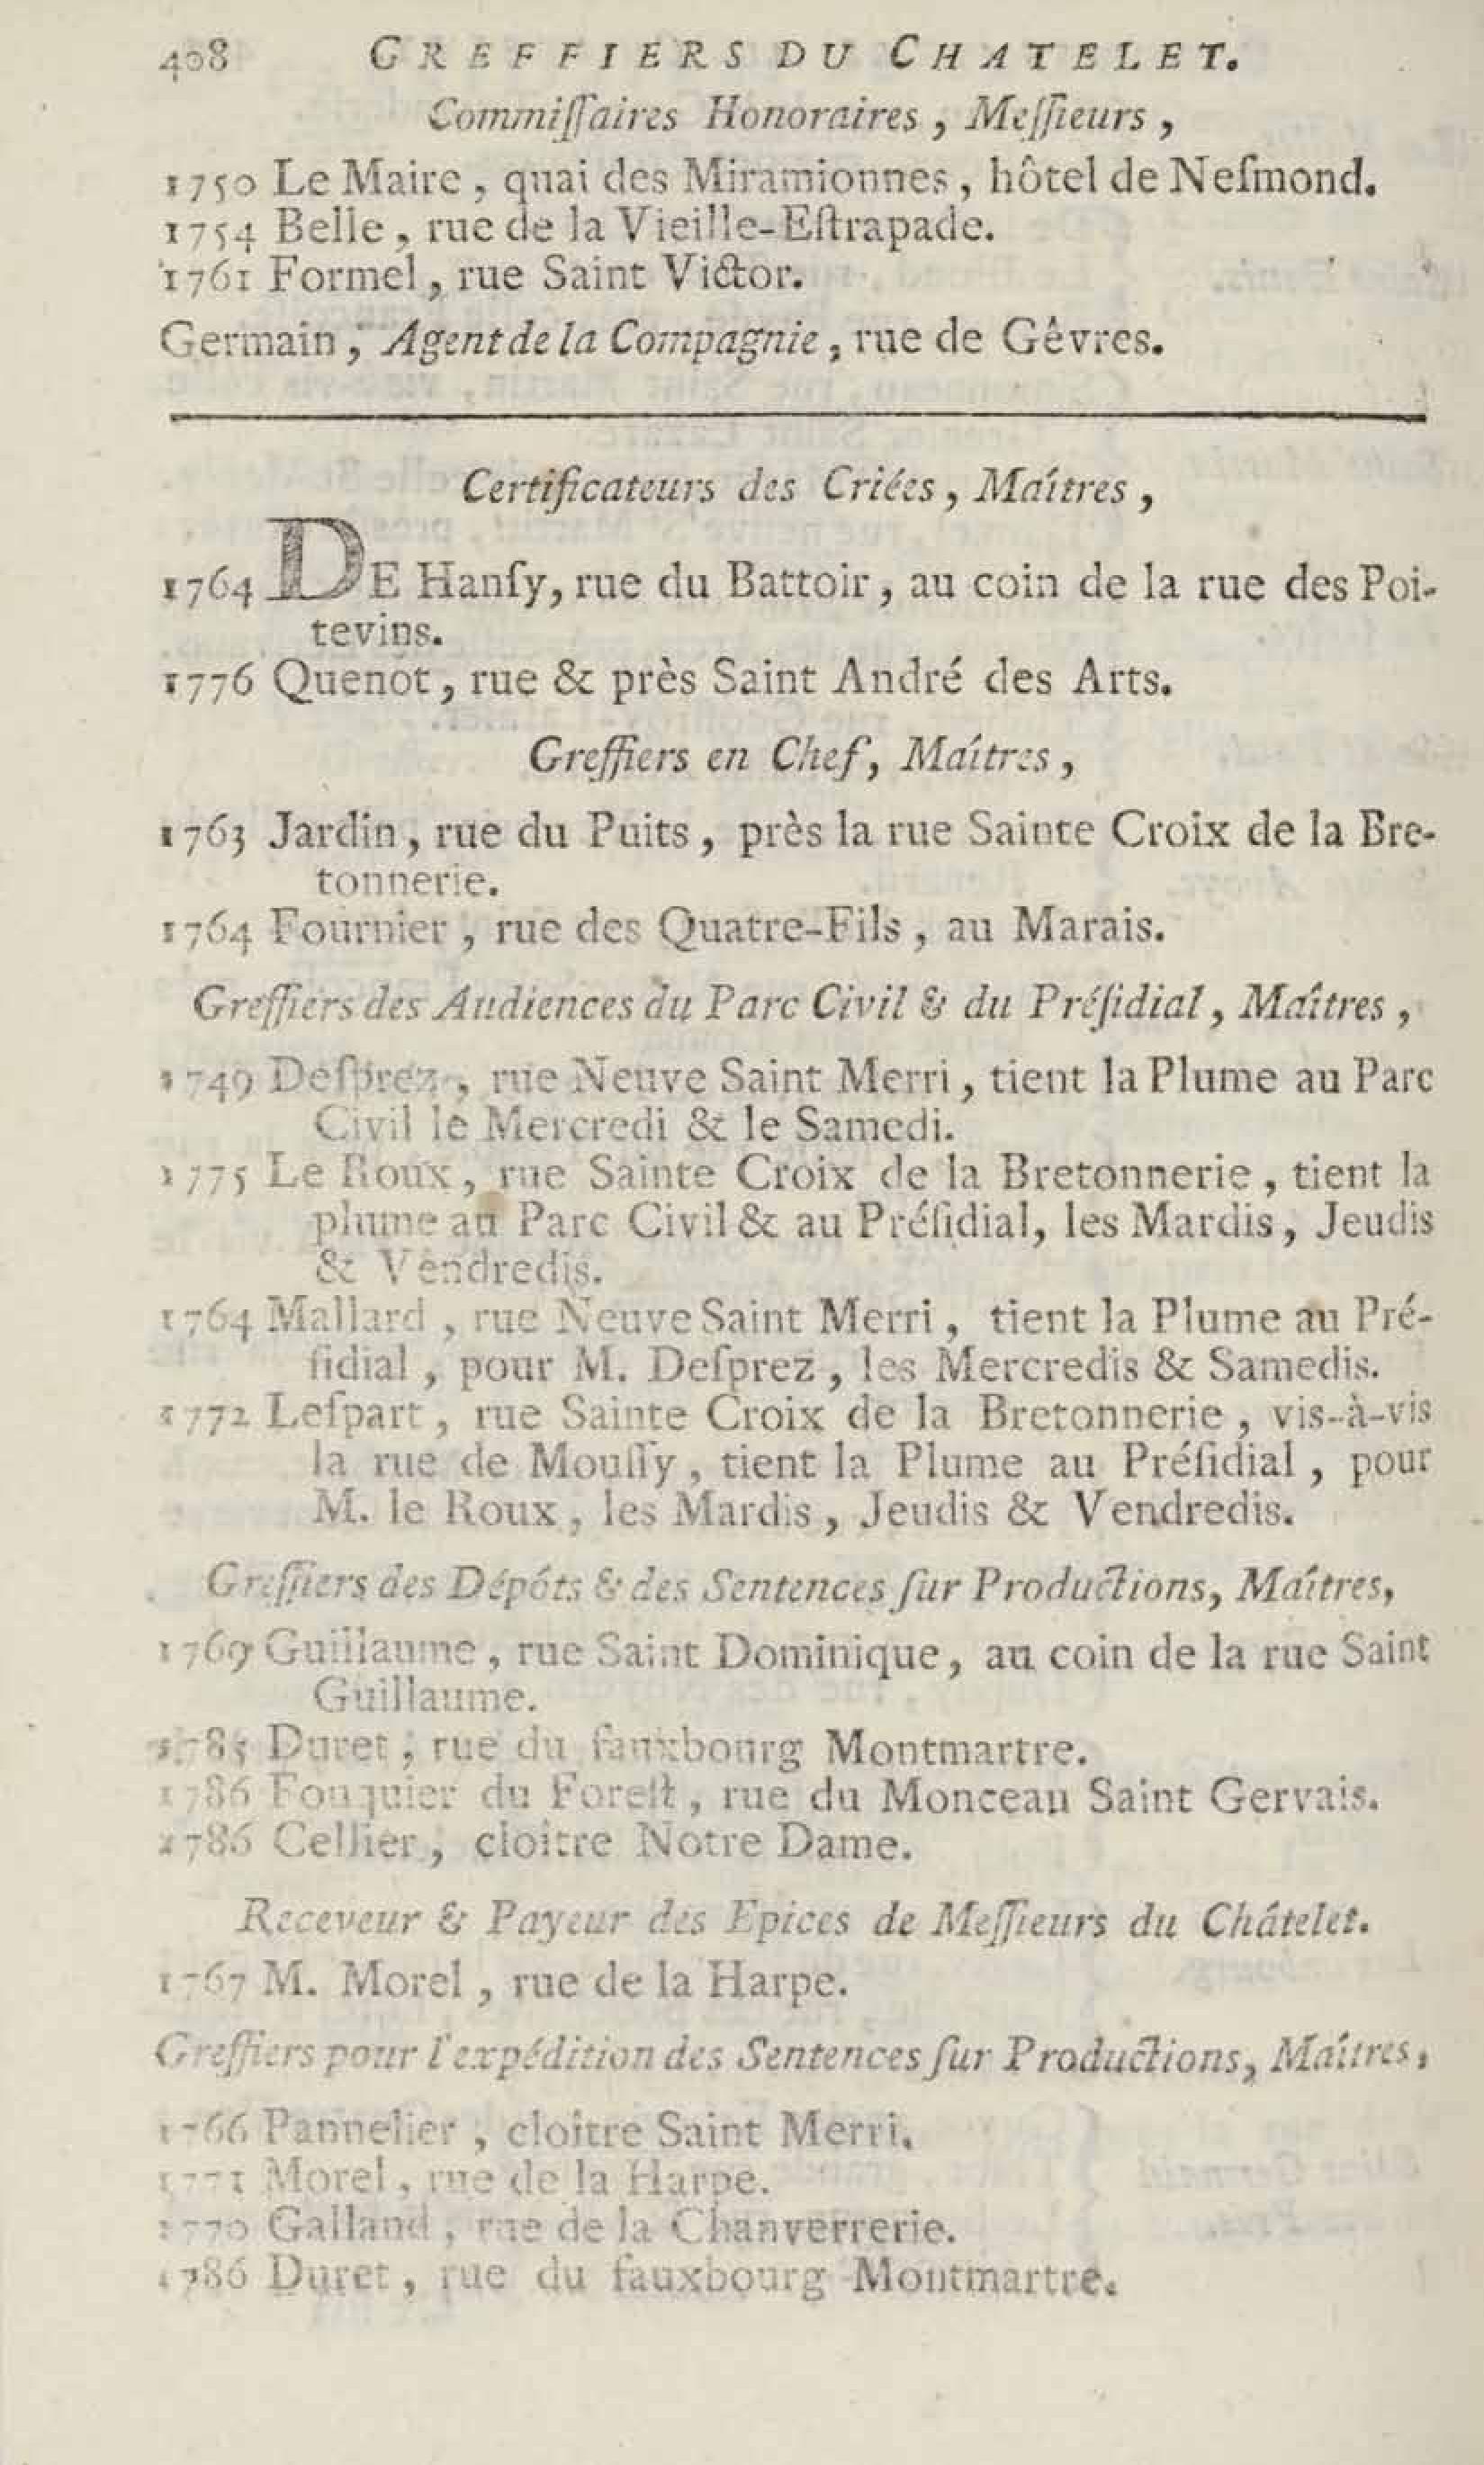 408 GREFFIERS DU CHATELET.
Commiſſaires Honoraires, Meſſieurs,
1750 Le Maire, quai des Miramionnes, hôtel de Neſmond.
1754 Belle, rue de la Vieille-Eſtrapade.
1761 Formel, rue Saint Victor.
Germain, Agent de la Compagnie, rue de Gêvres.
Certificateurs des Criées, Maîtres,
1764 DE Hanſy, rue du Battoir, au coin de la rue des Poi-
tevins.
1776 Quenot, rue & près Saint André des Arts.
Greffiers en Chef, Maîtres,
1763 Jardin, rue du Puits, près la rue Sainte Croix de la Bre-
tonnerie.
1764 Fournier, rue des Quatre-Fils, au Marais.
Greffiers des Audiences du Parc Civil & du Préſidial, Maîtres,
1749 Deſprez, rue Neuve Saint Merri, tient la Plume au Parc
Civil le Mercredi & le Samedi.
1775 Le Roux, rue Sainte Croix de la Bretonnerie, tient la
plume au Parc Civil & au Préſidial, les Mardis, Jeudis
& Vendredis.
1764 Mallard, rue Neuve Saint Merri, tient la Plume au Pré-
ſidial, pour M. Deſprez, les Mercredis & Samedis.
1772 Leſpart, rue Sainte Croix de la Bretonnerie, vis-à-vis
la rue de Mouſſy, tient la Plume au Préſidial, pour
M. le Roux, les Mardis, Jeudis & Vendredis.
Greffiers des Dépôts & des Sentences ſur Productions, Maîtres,
1769 Guillaume, rue Saint Dominique, au coin de la rue Saint
Guillaume.
1785 Duret, rue du fauxbourg Montmartre.
1786 Fouquier du Foreſt, rue du Monceau Saint Gervais.
1786 Cellier, cloître Notre Dame.
Receveur & Payeur des Epices de Meſſieurs du Châtelet.
1767 M. Morel, rue de la Harpe.
Greffiers pour l'expédition des Sentences ſur Productions, Maîtres,
1766 Pannelier, cloître Saint Merri.
1771 Morel, rue de la Harpe.
1770 Galland, rue de la Chanverrerie.
1786 Duret, rue du fauxbourg Montmartre.